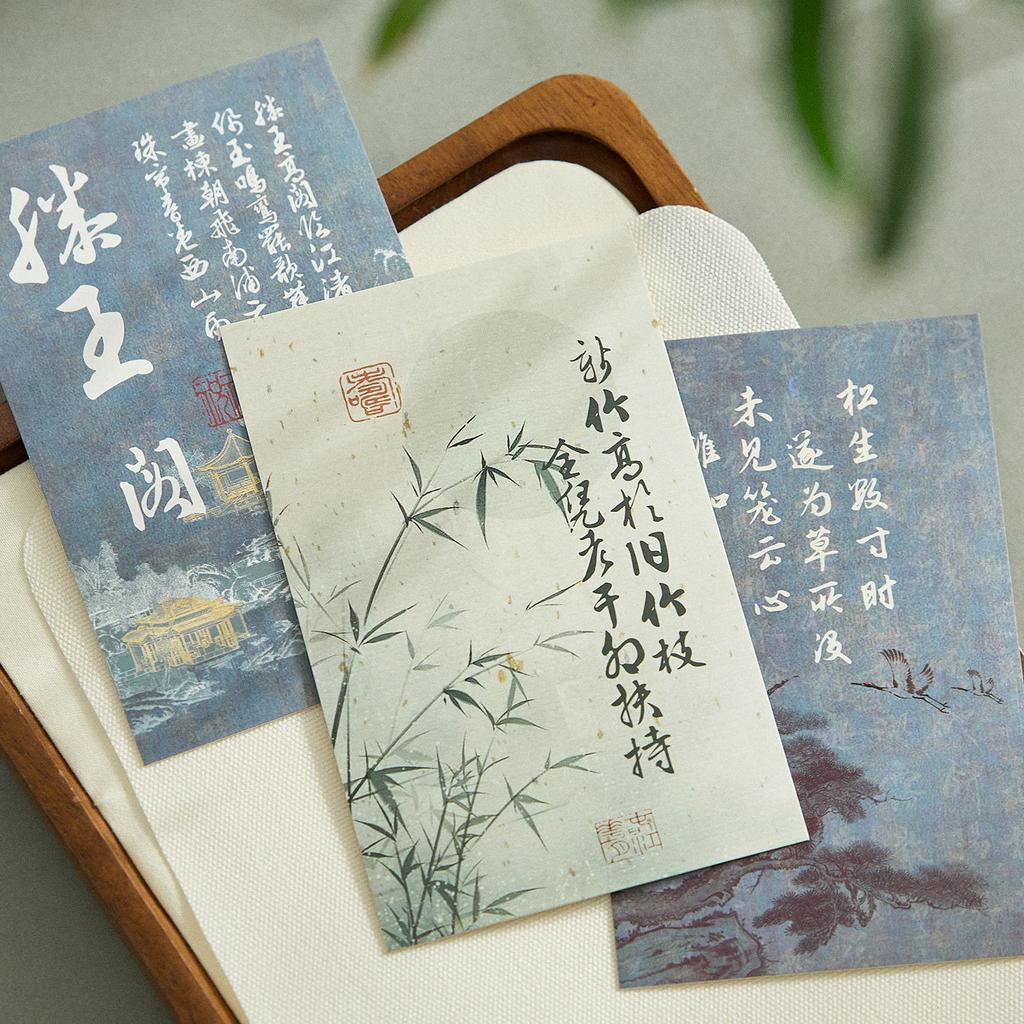 滕王高阁临江渚
佩玉鳴鸞罷歌舞
畫棟朝飛南浦云
珠帘暮卷西山雨
滕王
阁
新竹高於旧竹枝
全凭老干为扶持
松生数寸时
遂为草所没
未见笼云心